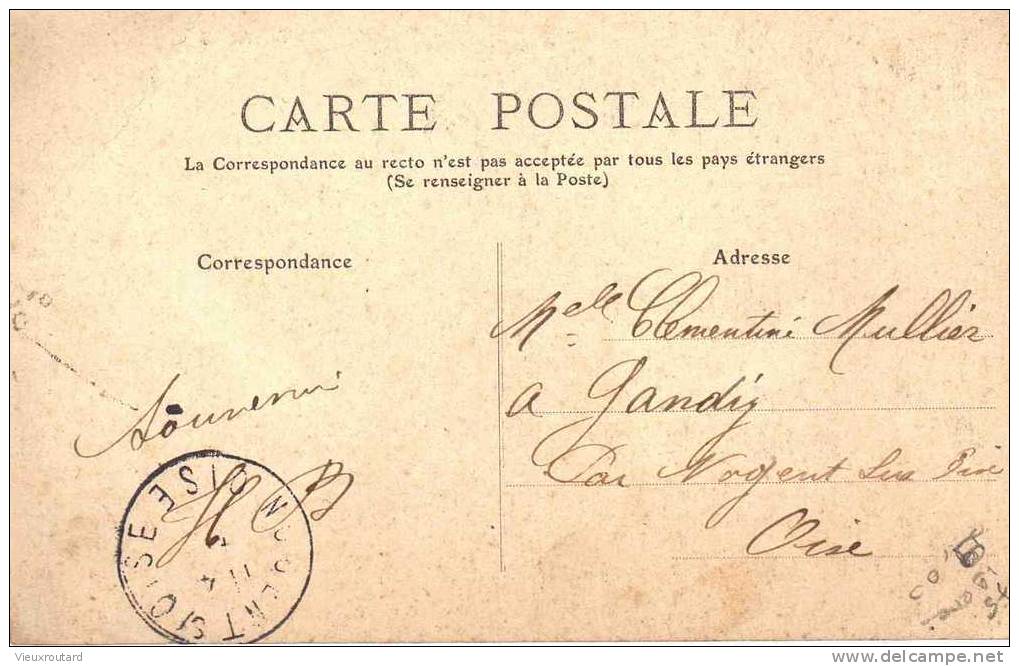 CARTE POSTALE
La Correspondance au recto n'est pas acceptée par tous les pays étrangers
(Se renseigner à la Poste)
Correspondance
Adresse
Melle Clementine Mulliez
a Gandiz
Par Nogent sur Oise
Oise
Souvenir
H B
NOGENT S/ OISE
OISE
Vieuxroutard
www.delcampe.net